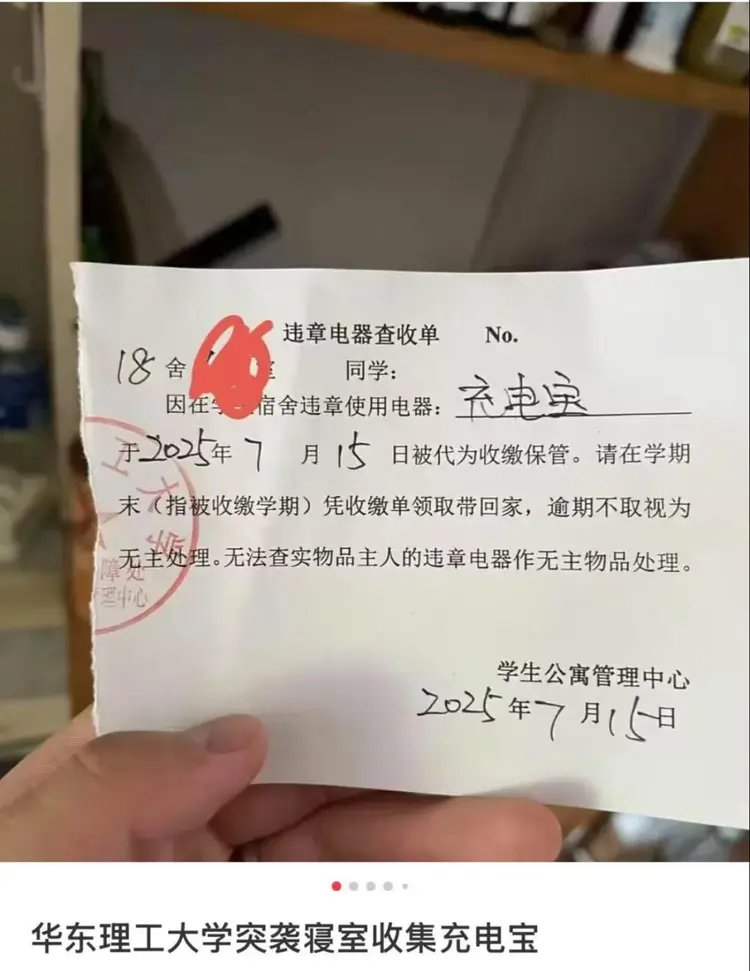 违章电器查收单 No.
18 舍 室 同学：
因在学 宿舍违章使用电器：充电宝
于2025年7月15日被代为收缴保管。请在学期
末（指被收缴学期）凭收缴单领取带回家，逾期不取视为
无主处理。无法查实物品主人的违章电器作无主物品处理。
工大学
障处
理中心
学生公寓管理中心
2025年7月15日
华东理工大学突袭寝室收集充电宝